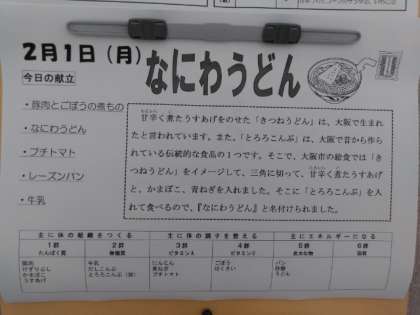 2月1日（月）
なにわうどん
今日の献立
・豚肉とごぼうの煮もの
・なにわうどん
・プチトマト
・レーズンパン
・牛乳
甘辛く煮たうすあげをのせた「きつねうどん」は、大阪で生まれ
たと言われています。また、「とろろこんぶ」は、大阪で昔から作ら
れている伝統的な食品の１つです。そこで、大阪市の給食では「き
つねうどん」をイメージして、三角に切って、甘辛く煮たうすあげ
と、かまぼこ、青ねぎを入れました。そこに「とろろこんぶ」を入
れて食べるので、『なにわうどん』と名付けられました。
主に体の組織をつくる
主に体の調子を整える
主にエネルギーになる
1群
2群
3群
4群
5群
6群
たんぱく質
無機質
ビタミンA
ビタミンC
炭水化物
脂肪
豚肉
牛乳
にんじん
ごぼう
パン
けずりぶし
だしこんぶ
青ねぎ
はくさい
砂糖
かまぼこ
とろろこんぶ
プチトマト
うどん
うすあげ